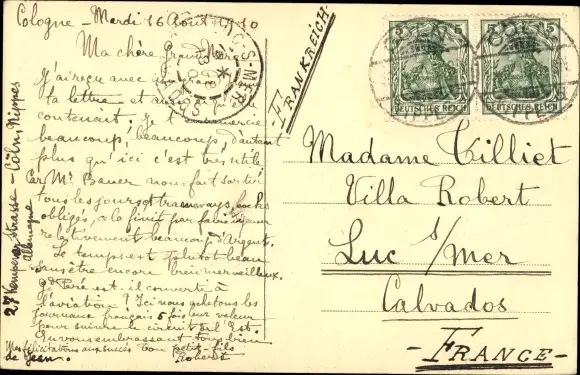 Cologne - Mardi 16 Août 1910
Ma chère Grand'Mère
J'ai reçu avec
ta lettre et
contenait. Je t'en remercie
beaucoup, beaucoup, d'autant
plus qu'ici c'est très utile
Car Mr Bauer nous fait sortir
tous les jours et tramways,
obligés, cela finit par faire
relativement beaucoup d'Argent.
Le temps est plutôt beau
sans être encore bien merveilleux.
Gd Père est-il converti à
l'aviation? Ici nous achetons les
journaux français 5 fois leur valeur
pour suivre le circuit de l'Est.
En vous embrassant tous bien
Mes félicitations aux succès ton petit-fils
de Jean. Robert
27 Kempener Strasse - Cöln Nippes
Allemagne
LUC-S-MER
FRANKREICH
CÖLN
NIPPES
5 5
DEUTSCHES REICH
CÖLN
NIPPES
5 5
DEUTSCHES REICH
Madame Tilliet
Villa Robert
Luc s/Mer
Calvados
- FRANCE -